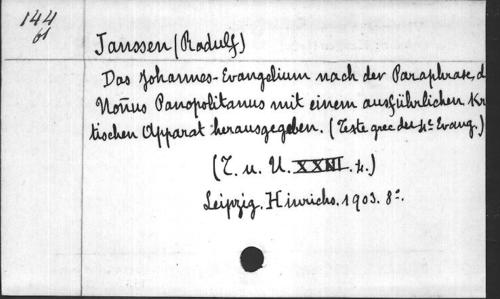 144
61
Janssen (Radulf)
Das Johannes-Evangelium nach der Paraphrase, d
Noñus Panopolitanus mit einem ausführlichen Kr
tischen Apparat herausgegeben. (Texte grec du 4e Evang.)
(T. u. U. XXIII. 4.)
Leipzig. Hinrichs. 1903. 8º.